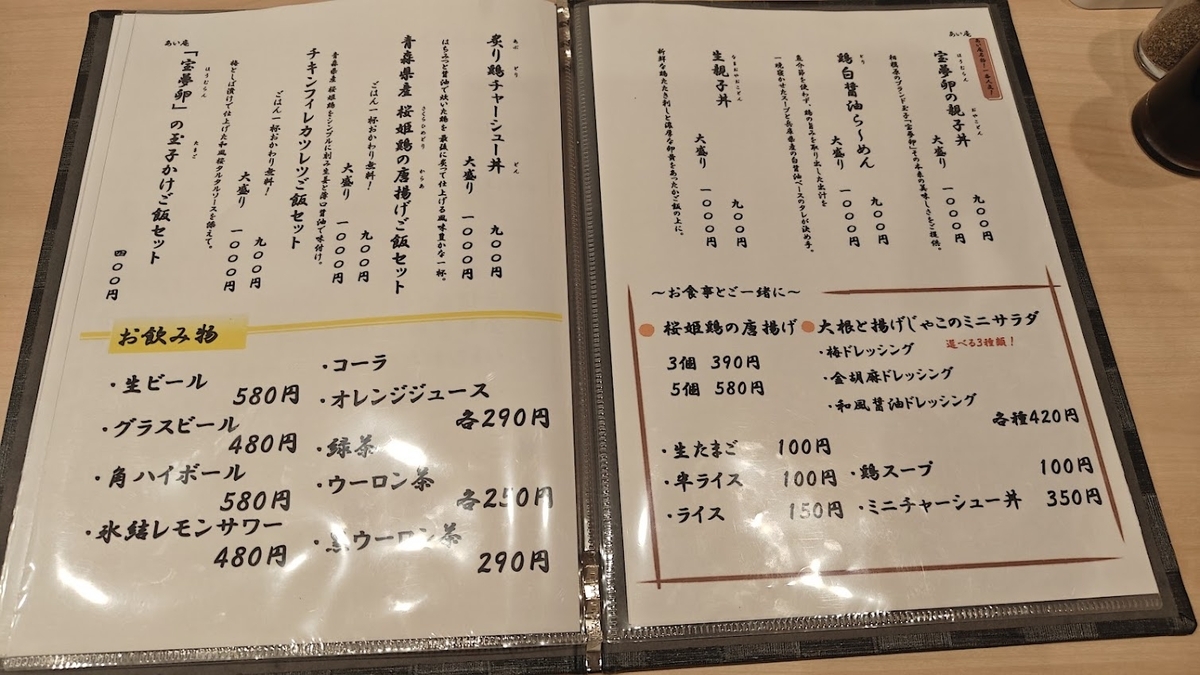 あい庵
あい庵名物!一番人気!
宝夢卵の親子丼
ほうむらん
おやこどん
九〇〇円
大盛り 一〇〇〇円
相模原のブランド玉子「宝夢卵」その本来の美味しさをご提供。
鶏白醤油ら〜めん
とり
九〇〇円
大盛り 一〇〇〇円
魚介節を使わず、鶏の旨みを取り出した出汁を
一晩寝かせたスープと兵庫県産の白醤油ベースのタレが決め手。
生親子丼
なまおやこどん
九〇〇円
大盛り 一〇〇〇円
新鮮な鶏たたき刺しと濃厚な卵黄をあったかご飯の上に。
〜お食事とご一緒に〜
桜姫鶏の唐揚げ
3個 390円
5個 580円
大根と揚げじゃこのミニサラダ
選べる3種類!
・梅ドレッシング
・金胡麻ドレッシング
・和風醤油ドレッシング
各種420円
・生たまご 100円
・半ライス 100円
・ライス 150円
・鶏スープ 100円
・ミニチャーシュー丼 350円
炙り鶏チャーシュー丼
あぶ
どり
どん
九〇〇円
大盛り 一〇〇〇円
はちみつと醤油で炊いた鶏を最後に炙って仕上げる風味豊かな一杯。
青森県産 桜姫鶏の唐揚げご飯セット
さくらひめどり
からあ
ごはん一杯おかわり無料!
九〇〇円
大盛り 一〇〇〇円
青森県産桜姫鶏をシンプルに刻み生姜と薄口醤油で味付け。
チキンフィレカツレツご飯セット
ごはん一杯おかわり無料!
九〇〇円
大盛り 一〇〇〇円
梅としば漬けで仕上げた和風桜タルタルソースを添えて。
あい庵
「宝夢卵」の玉子かけご飯セット
ほうむらん
たまご
四〇〇円
お飲み物
・生ビール
580円
・グラスビール
480円
・角ハイボール
580円
・氷結レモンサワー
480円
・コーラ
・オレンジジュース
各290円
・緑茶
・ウーロン茶
各250円
・黒ウーロン茶
290円